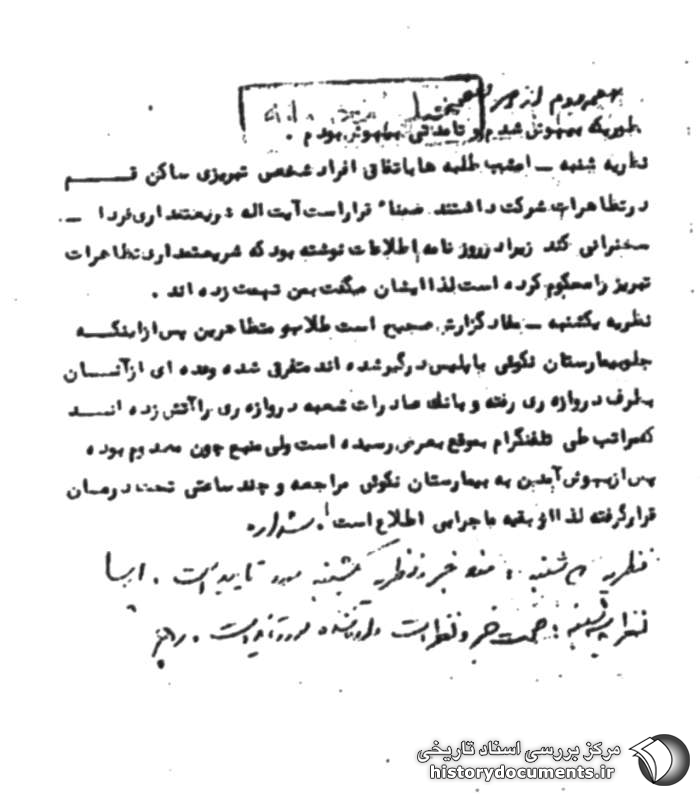 طوریکه بیهوش شدم و تا مدتی بیهوش بودم .
نظریه شنبه ـ امشب طلبه ها باتفاق افراد شخص تبریزی ساکن قم
در تظاهرات شرکت داشتند ضمنا" قرار است آیت اله شریعتمداری فردا ـ
سخنرانی کند زیرا در روز نامه اطلاعات نوشته بود که شریعتمداری تظاهرات
تبریز را محکوم کرده است لذا ایشان میگفت بمن تهمت زده اند .
نظریه یکشنبه ـ مفاد گزارش صحیح است طلاب و متظاهرین پس از اینکه
جلو بیمارستان نکوئی با پلیس درگیر شده اند متفرق شده وعده ای از آنان
بطرف دروازه ری رفته و بانک صادرات شعبه دروازه ری را آتش زده اند
که مراتب طی تلفنگرام بموقع بعرض رسیده است ولی منبع چون مصدوم بوده
پس از بیهوش آمدن به بیمارستان نکوئی مراجعه و چند ساعتی تحت درمان
قرار گرفته لذا از بقیه ماجرا بی اطلاع است .
نظریه شنبه : خبر و نظریه یکشنبه مورد تایید است .
نظریه : صحت خبر و نظرات مورد تایید است .
مرکز بررسی اسناد تاریخی
historydocuments.ir